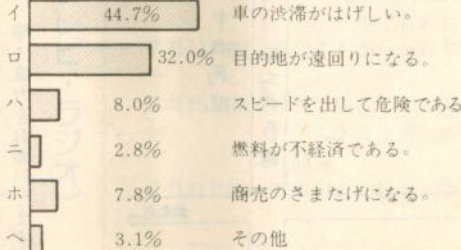 イ 44.7% 車の渋滞がはげしい。
ロ 32.0% 目的地が遠回りになる。
ハ 8.0% スピードを出して危険である
ニ 2.8% 燃料が不経済である。
ホ 7.8% 商売のさまたげになる。
ヘ 3.1% その他